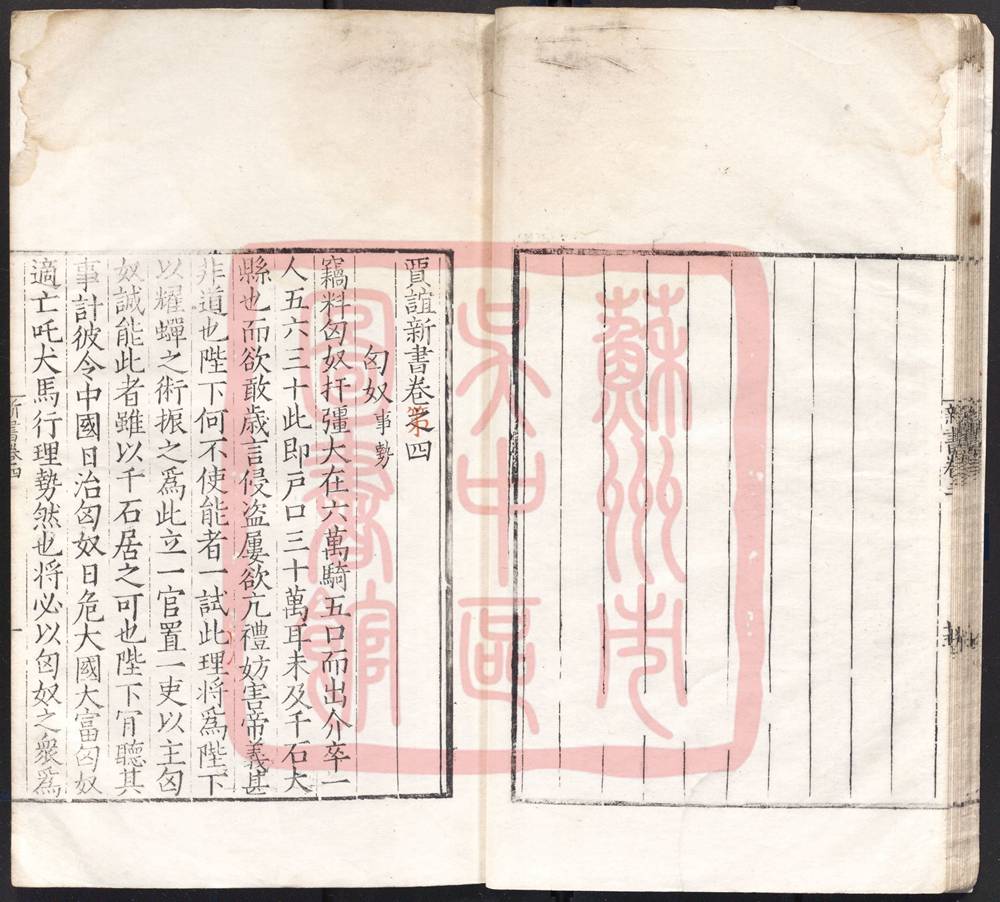 新書卷三
賈誼新書卷之四
第
匈奴 事勢
竊料匈奴扞彊大在六萬騎五口而出介卒一
人五六三十此即戸口三十萬耳未及千石大
縣也而欲敢歲言侵盗屢欲亢禮妨害帝義甚
非道也陛下何不使能者一試此理将爲陛下
以耀蟬之術振之爲此立一官置一吏以主匈
奴誠能此者雖以千石居之可也陛下肎聽其
事計彼令中國日治匈奴日危大國大富匈奴
適亡吒犬馬行理勢然也将必以匈奴之衆爲
新書卷四
一
蘇州市
吳中區
圖書館